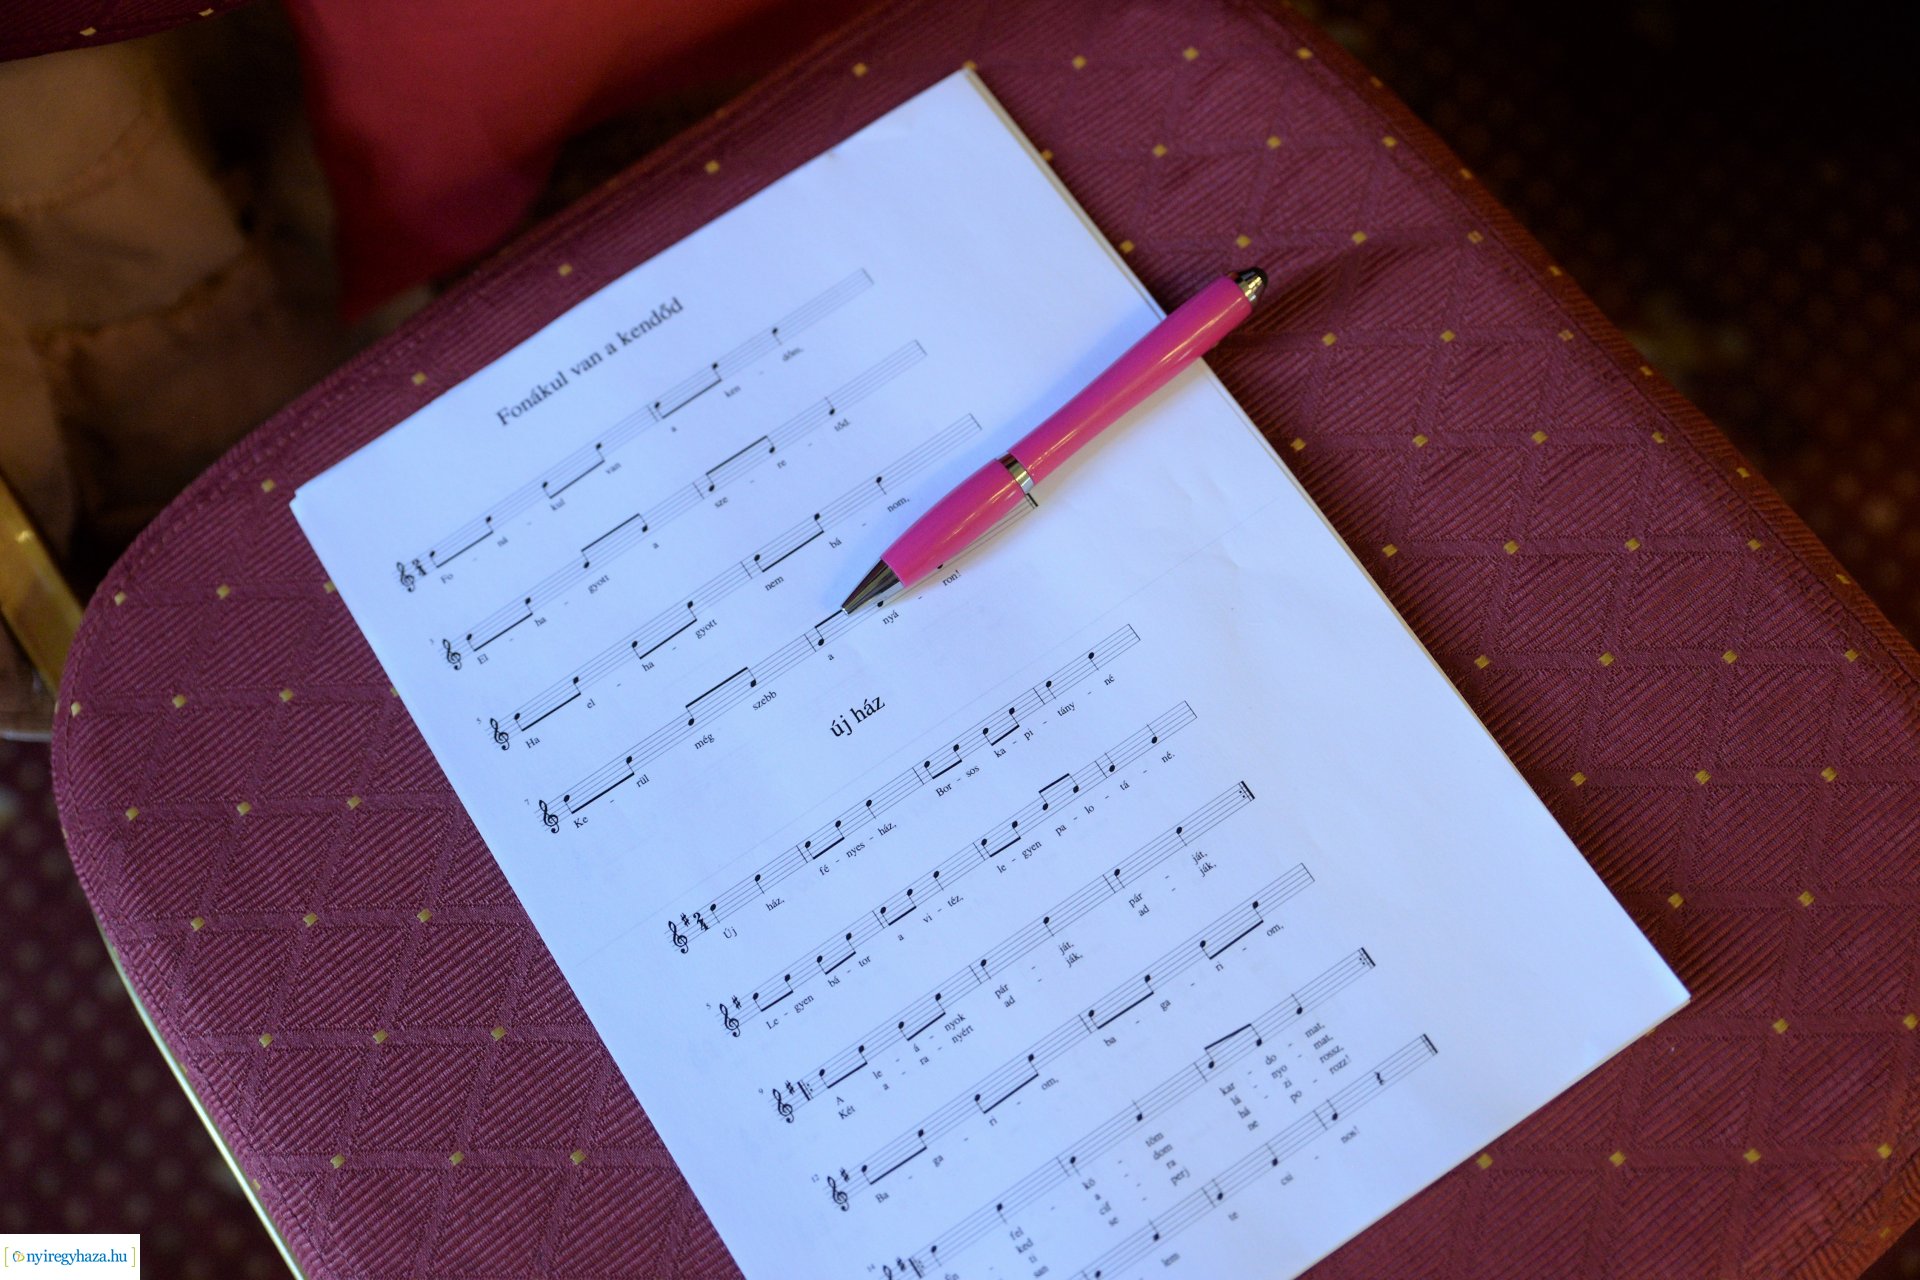 Fonákul van a kendőd
Fo - ná - kul van a ken - dőm,
3
El - ha - gyott a sze - re - tőd.
5
Ha el - ha - gyott nem bá - nom,
7
Ke - rül még szebb a nyá - ron!
új ház
Új ház, fé - nyes - ház, Bor - sos ka - pi - tány - né
5
Le - gyen bá - tor a vi - téz, le - gyen pa - lo - tá - né.
9
A le - á - nyok pár - ját, pár - ját,
Két a - ra - nyért ad - ják, ad - ják,
12
Ba - ga - ri - om, ba - ga - ri - om,
14
fel - kö - töm kar - do - mat,
ked - a - dom lá - nyo - mat,
zi - rossz,
san se perj ne po - rozz!
lem te csi - nos!
nyiregyhaza.hu